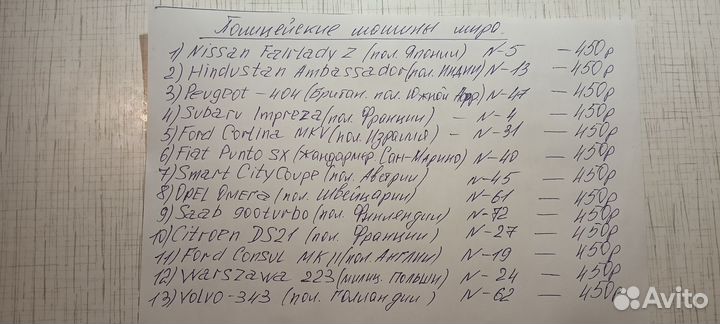 Полицейские машины мира.
1) Nissan Fairlady Z (пол. Японии) N-5 – 450р
2) Hindustan Ambassador (пол. Индии) N-13 – 450р
3) Peugeot-404 (Британ. пол. Южной Афр) N-47 – 450р
4) Subaru Impreza (пол. Франции) – N-4 – 450р
5) Ford Cortina MKV (пол. Израиля) – N-31 – 450р
6) Fiat Punto SX (жандармер. Сан-Марино) N-40 – 450р
7) Smart City Coupe (пол. Австрии) N-45 – 450р
8) Opel Omega (пол. Швейцарии) N-61 – 450р
9) Saab 900turbo (пол. Финлендии) N-72 – 450р
10) Citroen DS21 (пол. Франции) N-27 – 450р
11) Ford Consul MK II (пол Англии) N-19 – 450р
12) Warszawa 223 (милиц. Польши) N-24 – 450р
13) Volvo-343 (пол. Голландии) N-62 – 450р
Avito